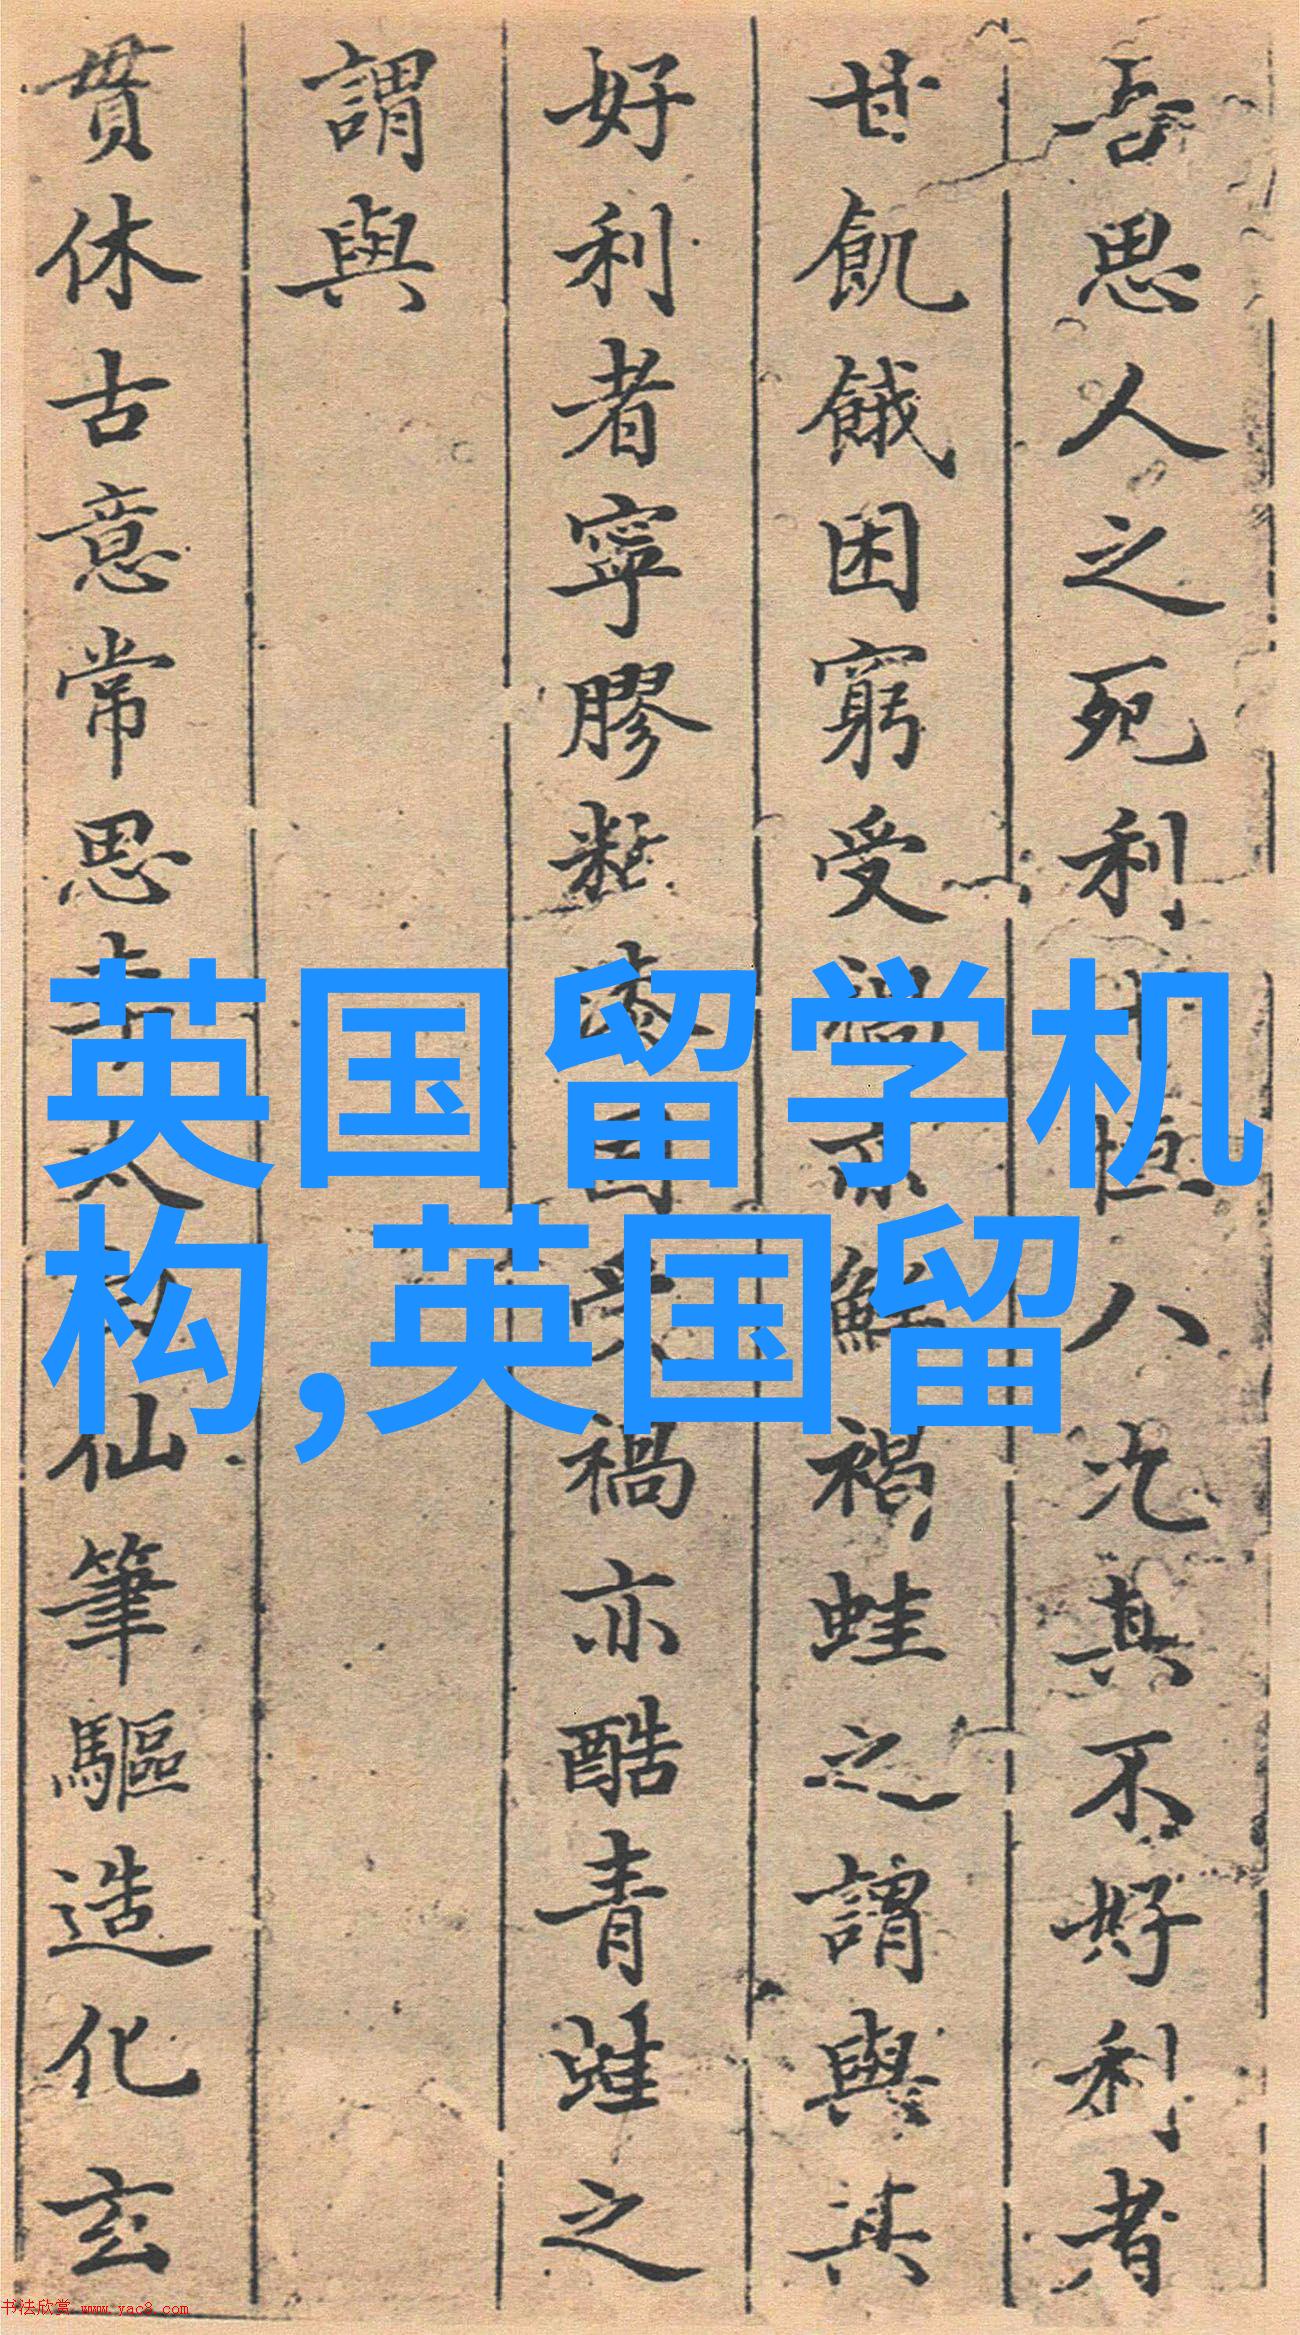 吾思人之死利十恒八其不好利者
甘飢餓困窮受禍亦鮮褐蛙之謂與其
好利者寧膠黏漆受禍亦酷青蛙之
謂與
貫休古意常思李太白仙筆驅造化玄
英国留学机
构,英国留
书法欣赏 www.yac8.com